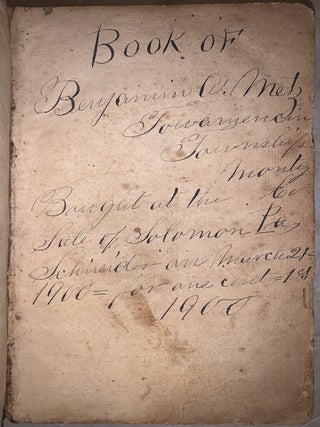 BOOK OF
Benjamin A. Metz
Towamencin
Township
Montg
Bought at the Co
Sale of Solomon Pa
Schneider on March 21st
1900 = for one cent = 1ct
1900